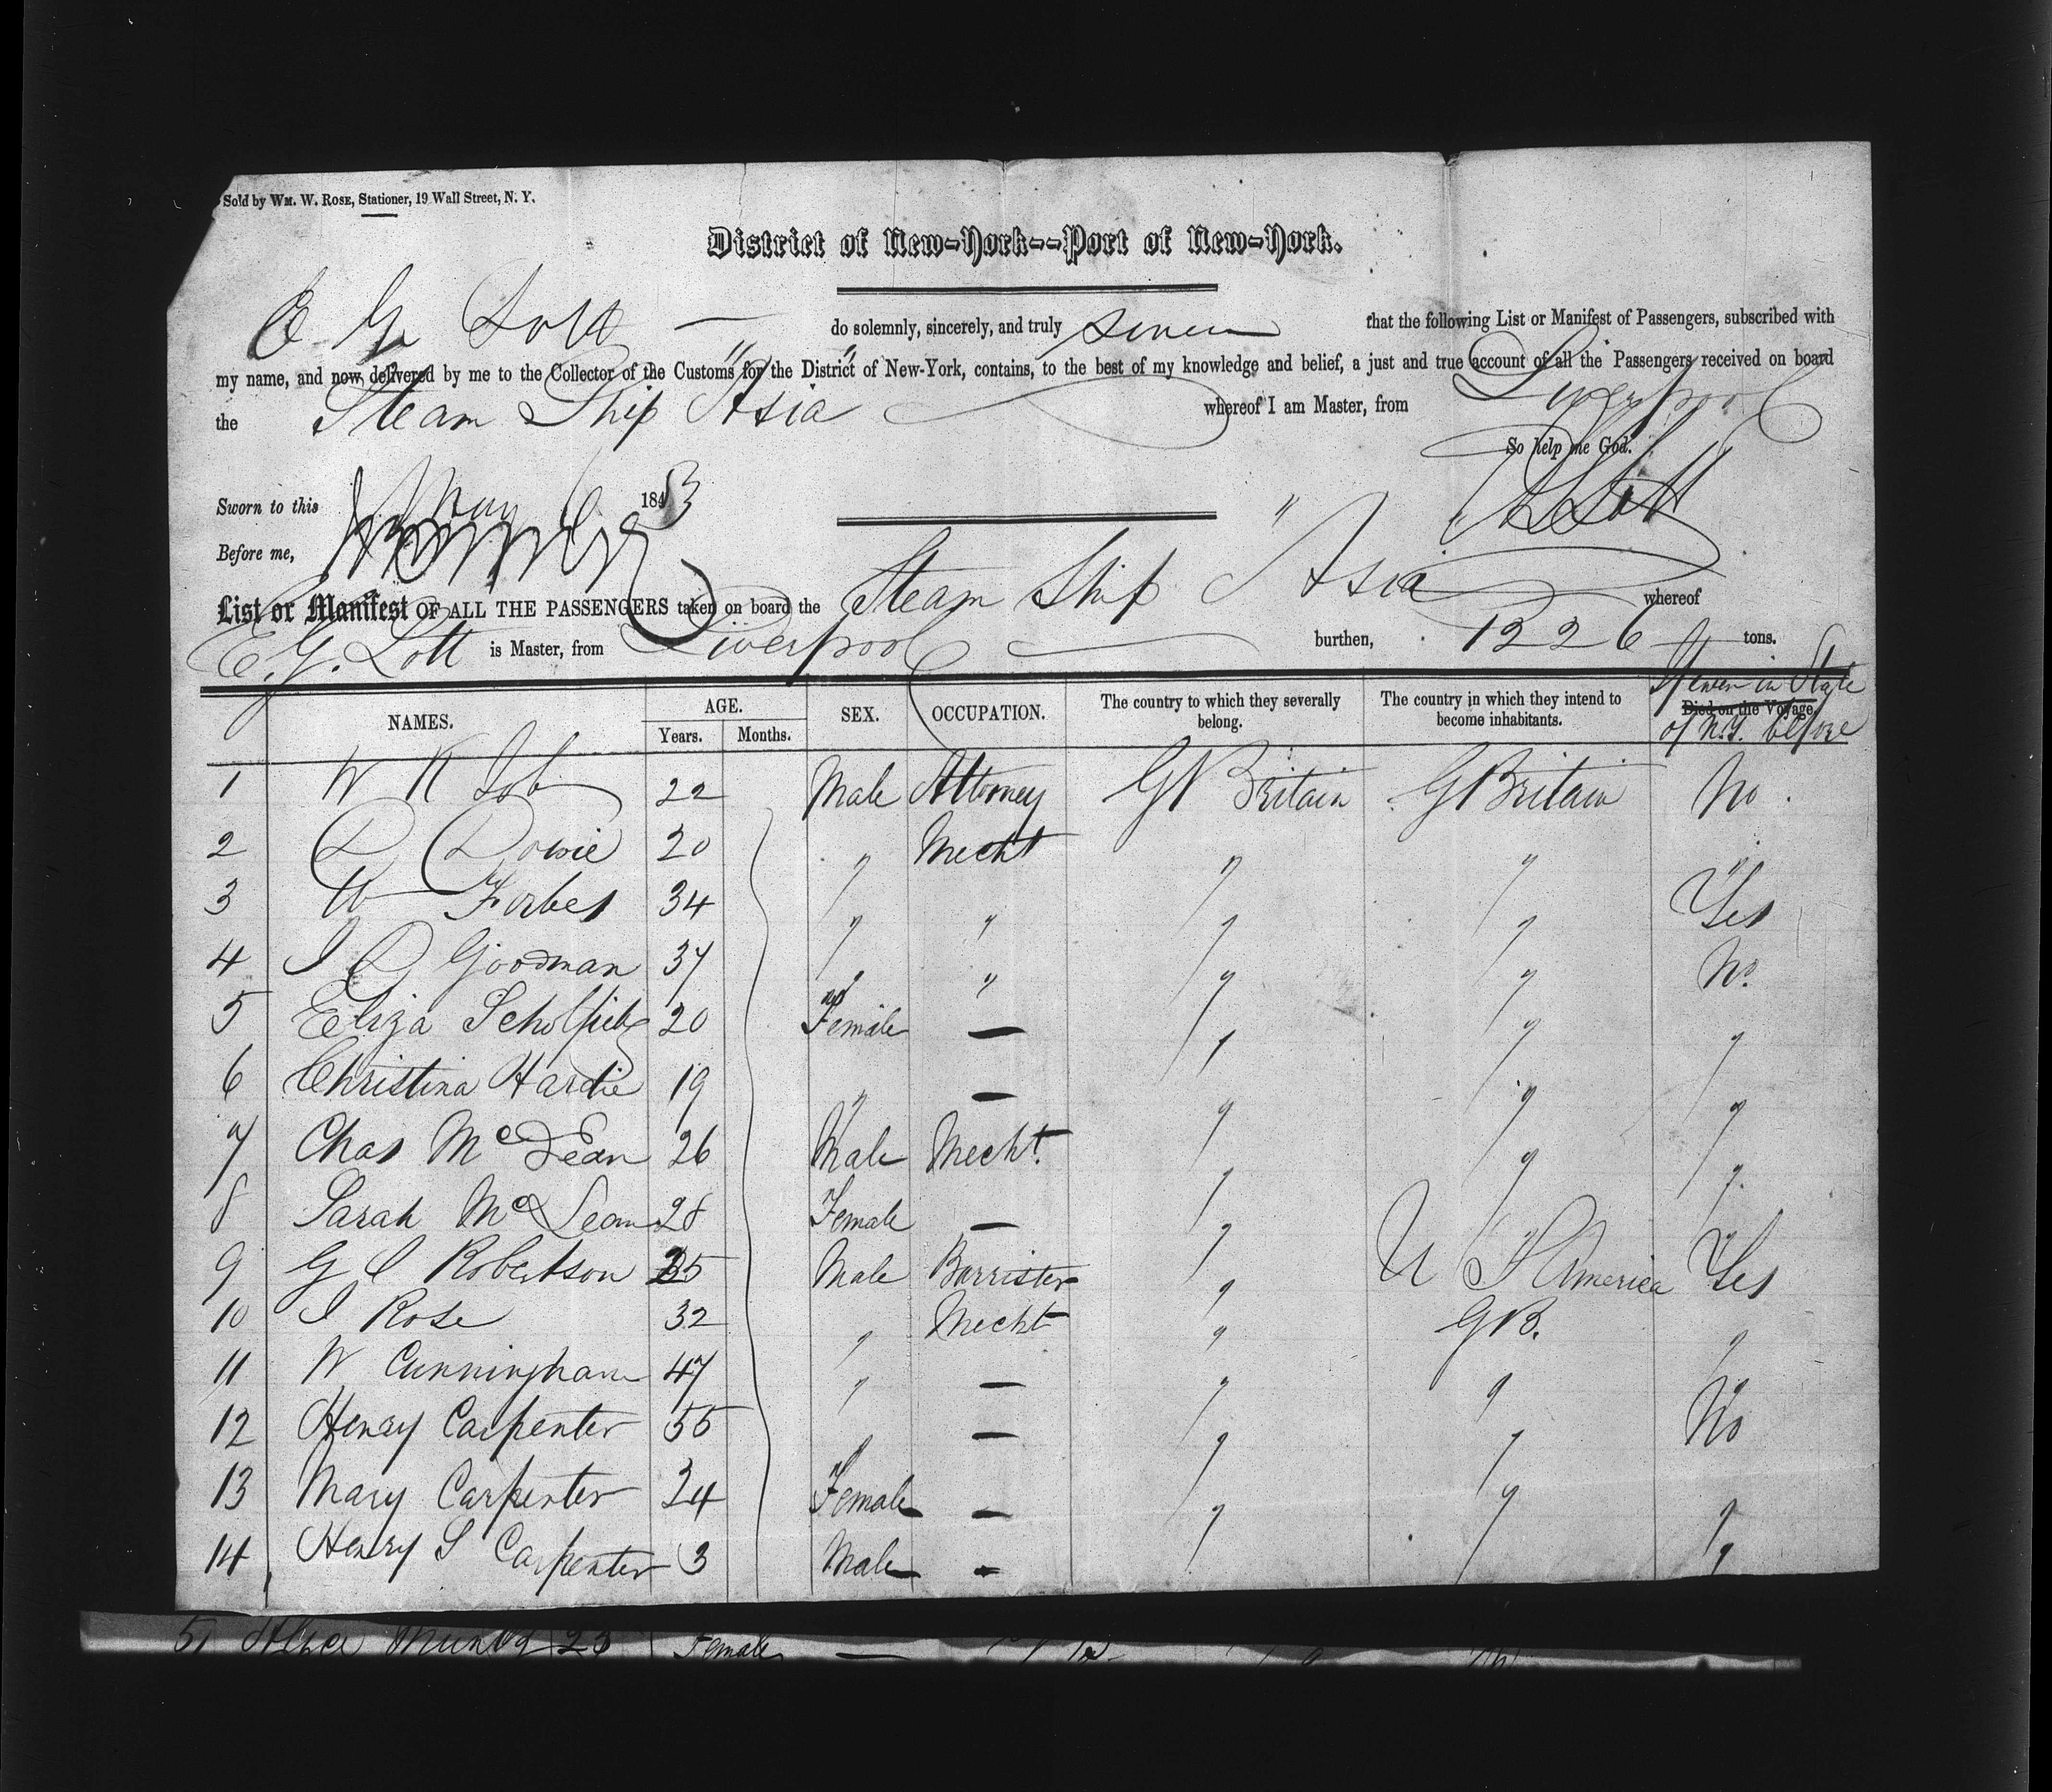 Sold by WM. W. ROSE, Stationer, 19 Wall Street, N. Y.
District of New-York--Port of New-York.
E G Lott do solemnly, sincerely, and truly swear that the following List or Manifest of Passengers, subscribed with
my name, and now delivered by me to the Collector of the Customs for the District of New-York, contains, to the best of my knowledge and belief, a just and true account of all the Passengers received on board
the Steam Ship "Asia" whereof I am Master, from Liverpool
So help me God.
E G Lott
Sworn to this May 1853
Before me,
List or Manifest OF ALL THE PASSENGERS taken on board the Steam Ship "Asia whereof
E. G. Lott is Master, from Liverpool burthen, 1226 tons.
NAMES. AGE. Years. Months. SEX. OCCUPATION. The country to which they severally belong. The country in which they intend to become inhabitants. Died on the Voyage. If ever in State of N.Y. before
1 W R Job 22 Male Attorney G Britain G Britain No.
2 D Dowie 20 " Mecht " " "
3 W Forbes 34 " " " " Yes
4 I D Goodman 37 " " " " No.
5 Eliza Scholfield 20 Female — " " "
6 Christina Hardie 19 " — " " "
7 Chas McLean 26 Male Mecht. " " "
8 Sarah McLean 28 Female — "
9 G C Robertson 35 Male Barrister " U S America Yes
10 I Rose 32 " Mecht " G B. "
11 W Cunningham 47 " — " " "
12 Henry Carpenter 55 " — " " No
13 Mary Carpenter 24 Female — " " "
14 Henry S Carpenter 3 Male — " " "
51 Alice 23 Female —